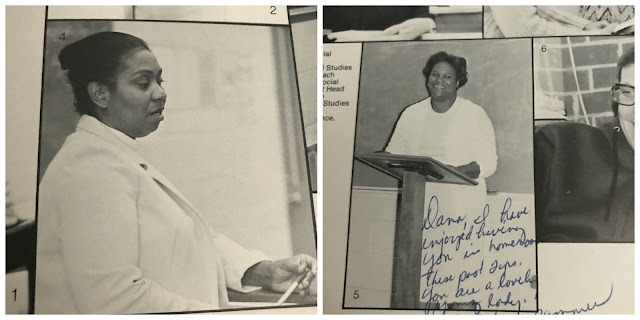 2
4
1
ial
l Studies
ach
ocial
t Head
e
Studies
nce.
6
5
Dana, I have
enjoyed having
you in homeroom
these past 2yrs.
You are a lovely
young lady.